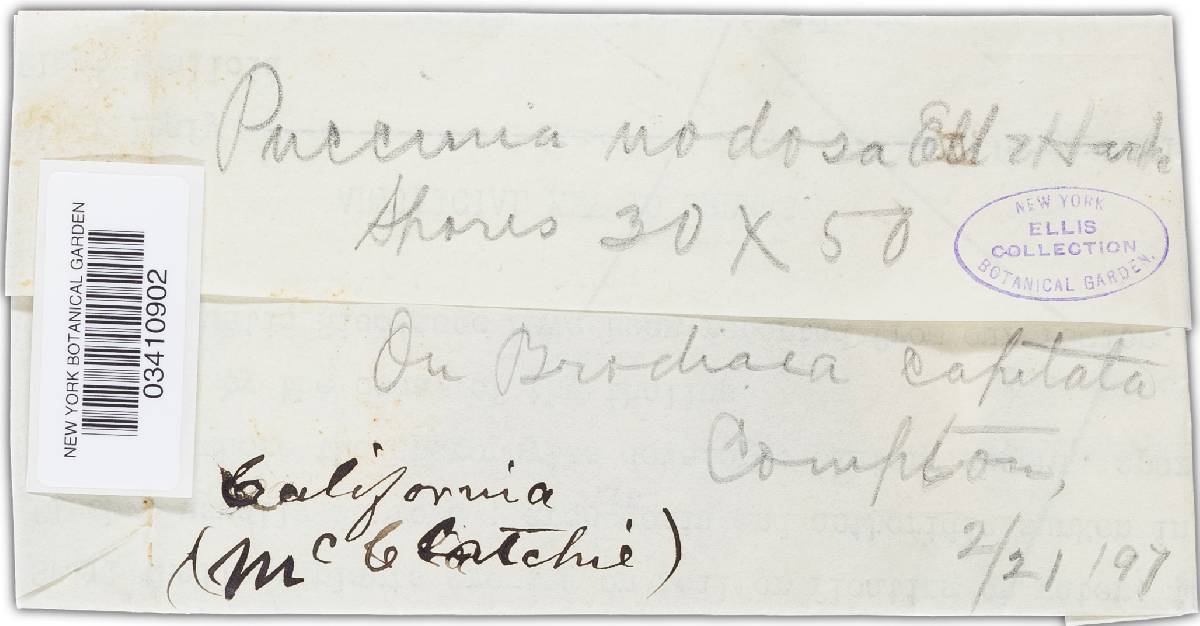 Puccinia nodosa Ell & Hark
Spores 30 X 50
NEW YORK
ELLIS
COLLECTION
BOTANICAL GARDEN.
On Brodiaea capitata
Compton,
California
(McClatchie)
2/21/97
NEW YORK BOTANICAL GARDEN
03410902